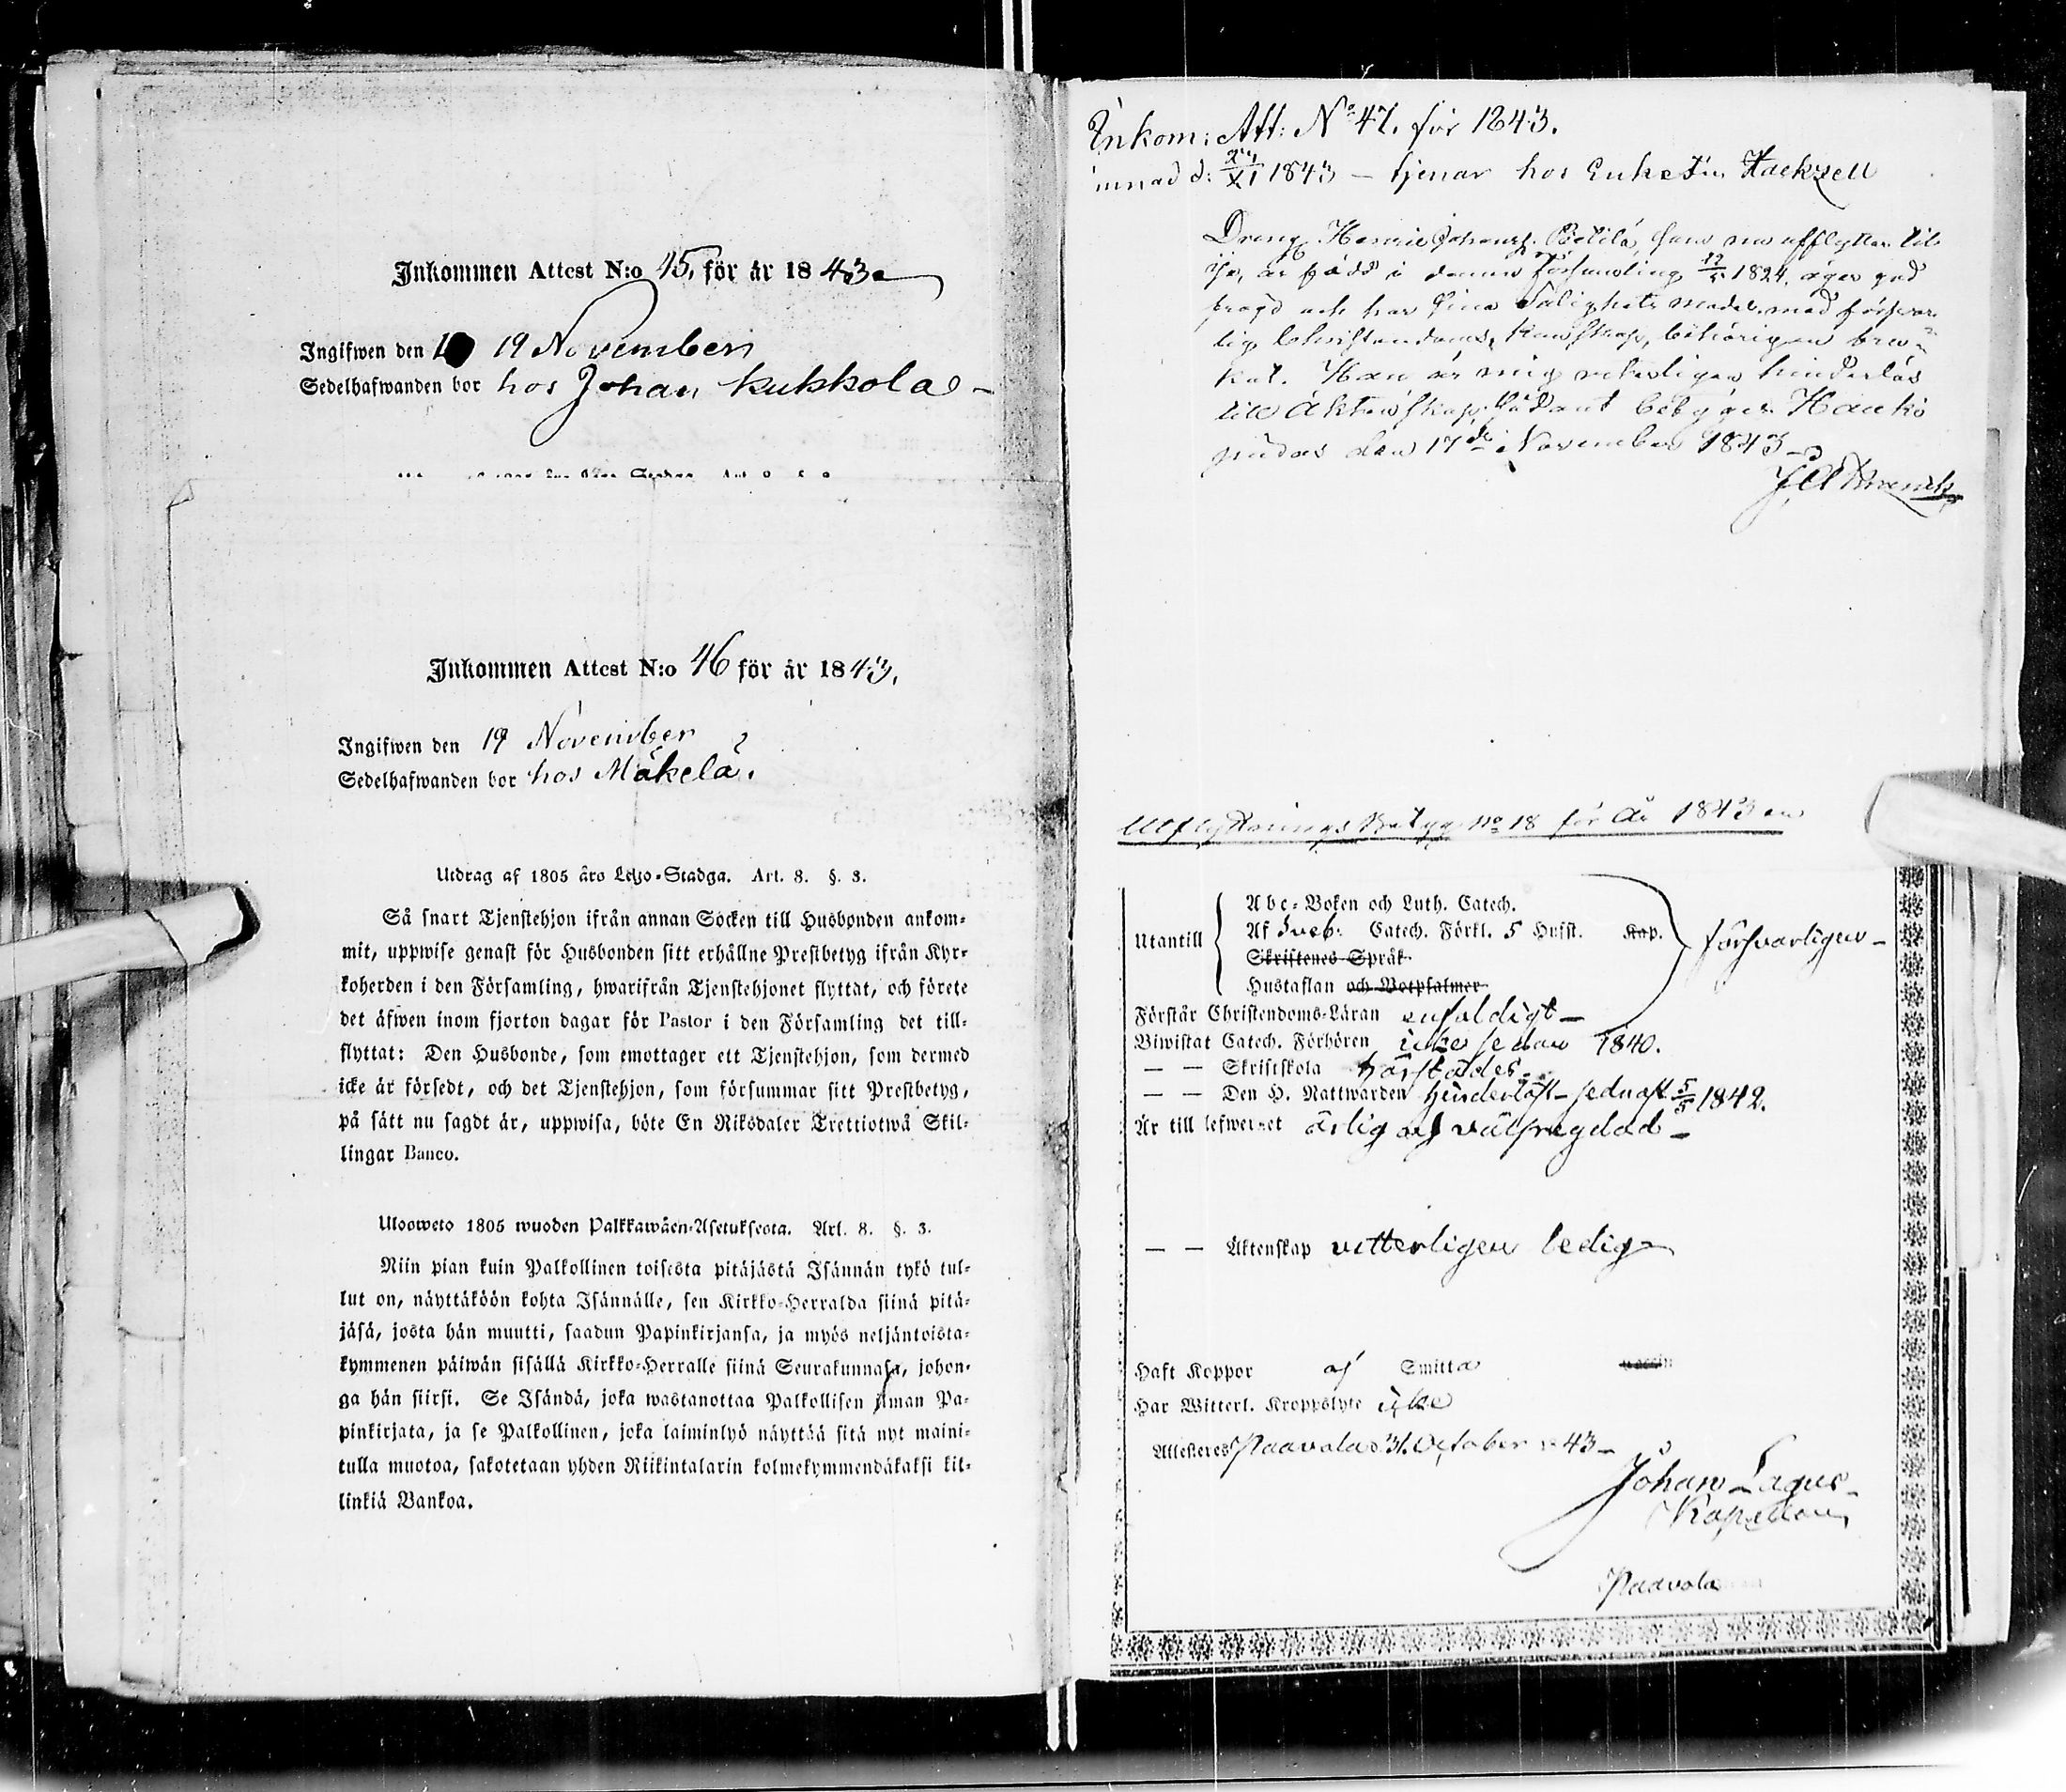 Inkommen Attest N:o 45, för år 1843.
Ingifwen den 19 November
Sedelhafwanden bor hos Johan Kukkola -
Inkommen Attest N:o 46 för år 1843.
Ingifwen den 19 November
Sedelhafwanden bor hos Mäkelä.
Utdrag af 1805 års Lego-Stadga. Art. 8. §. 3.
Så snart Tjenstehjon ifrån annan Socken till Husbonden ankom-
mit, uppwise genast för Husbonden sitt erhållne Prestbetyg ifrån Kyr-
koherden i den Församling, hwarifrån Tjenstehjonet flyttat, och förete
det äfwen inom fjorton dagar för Pastor i den Församling det till-
flyttat: Den Husbonde, som emottager ett Tjenstehjon, som dermed
icke är försedt, och det Tjenstehjon, som försummar sitt Prestbetyg,
på sätt nu sagdt är, uppwisa, böte En Riksdaler Trettiotwå Skil-
lingar Banco.
Ulosweto 1805 wuoden Palkkawäen-Asetuksesta. Art. 8. §. 3.
Niin pian kuin Palkollinen toisesta pitäjästä Isännän tykö tul-
lut on, näyttäköön kohta Isännälle, sen Kirkko-Herralda siinä pitä-
jäsä, josta hän muutti, saadun Papinkirjansa, ja myös neljäntoista-
kymmenen päiwän sisällä Kirkko-Herralle siinä Seurakunnasa, johon-
ga hän siirsi. Se Isändä, joka wastanottaa Palkollisen ilman Pa-
pinkirjata, ja se Palkollinen, joka laiminlyö näyttää sitä nyt maini-
tulla muotoa, sakotetaan yhden Riikintalarin kolmekymmendäkaksi kil-
linkiä Bankoa.
Inkom: Att: No 47. för 1843.
innad d: 24/XI 1843 - tjenar hos Enkefru Hackzell
Dreng Henric Johanss. som nu afflyttar til
Ijo, är född i denna församling 12/5 1824, äger god
fregd och har sina Salighets medel med försvar-
lig Christendoms kunskap, behörigen bru-
kat. Han är mig veterligen hinderlös
till Äktenskap. Sådant betygar. Hauki
pudas den 17de November 1843
Utflyttnings Betyg No 18 för År 1843
Utantill
Abc-Boken och Luth. Catech.
Af Sveb. Catech. Förkl. 5 Hufst. Kap. försvarligen -
Skriftenes Språk
Hustaflan och Botpsalmer
Förstår Christendoms-Läran enfaldigt -
Biwistat Catech. Förhören icke sedan 1840.
- - Skriftskola
- - Den H. Nattwarden hinderlöst - sednast 5/5 1842.
Är till lefwernet ärlig och välfregdad -
- - Äktenskap vetterligen ledig
Haft Koppor af Smitta
Har Witterl. Kroppslyte icke
Attesteres Paavola d. 31. October 1843 -
Johan Lagus -
Kapellan
Paavola